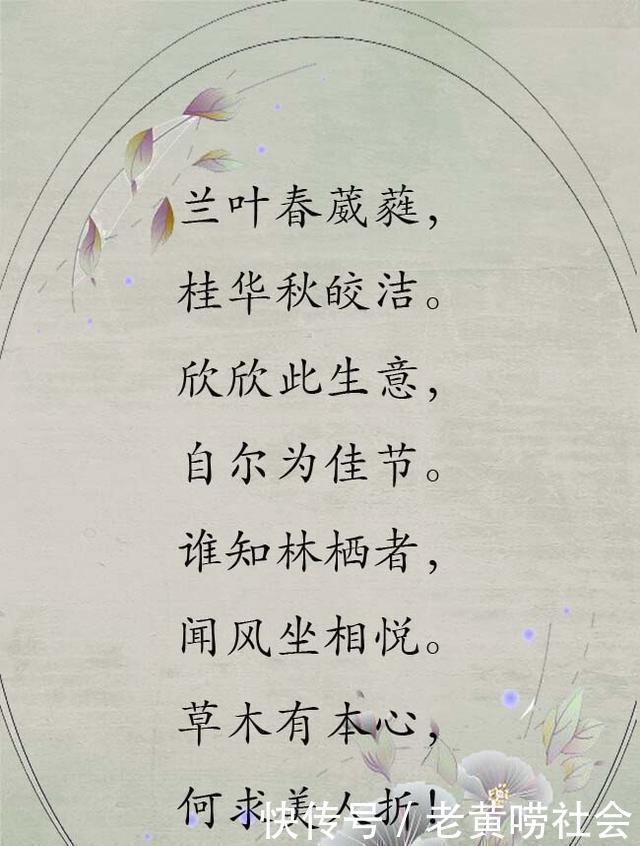 兰叶春葳蕤，
桂华秋皎洁。
欣欣此生意，
自尔为佳节。
谁知林栖者，
闻风坐相悦。
草木有本心，
何求美人折！
快传号/老黄唠社会